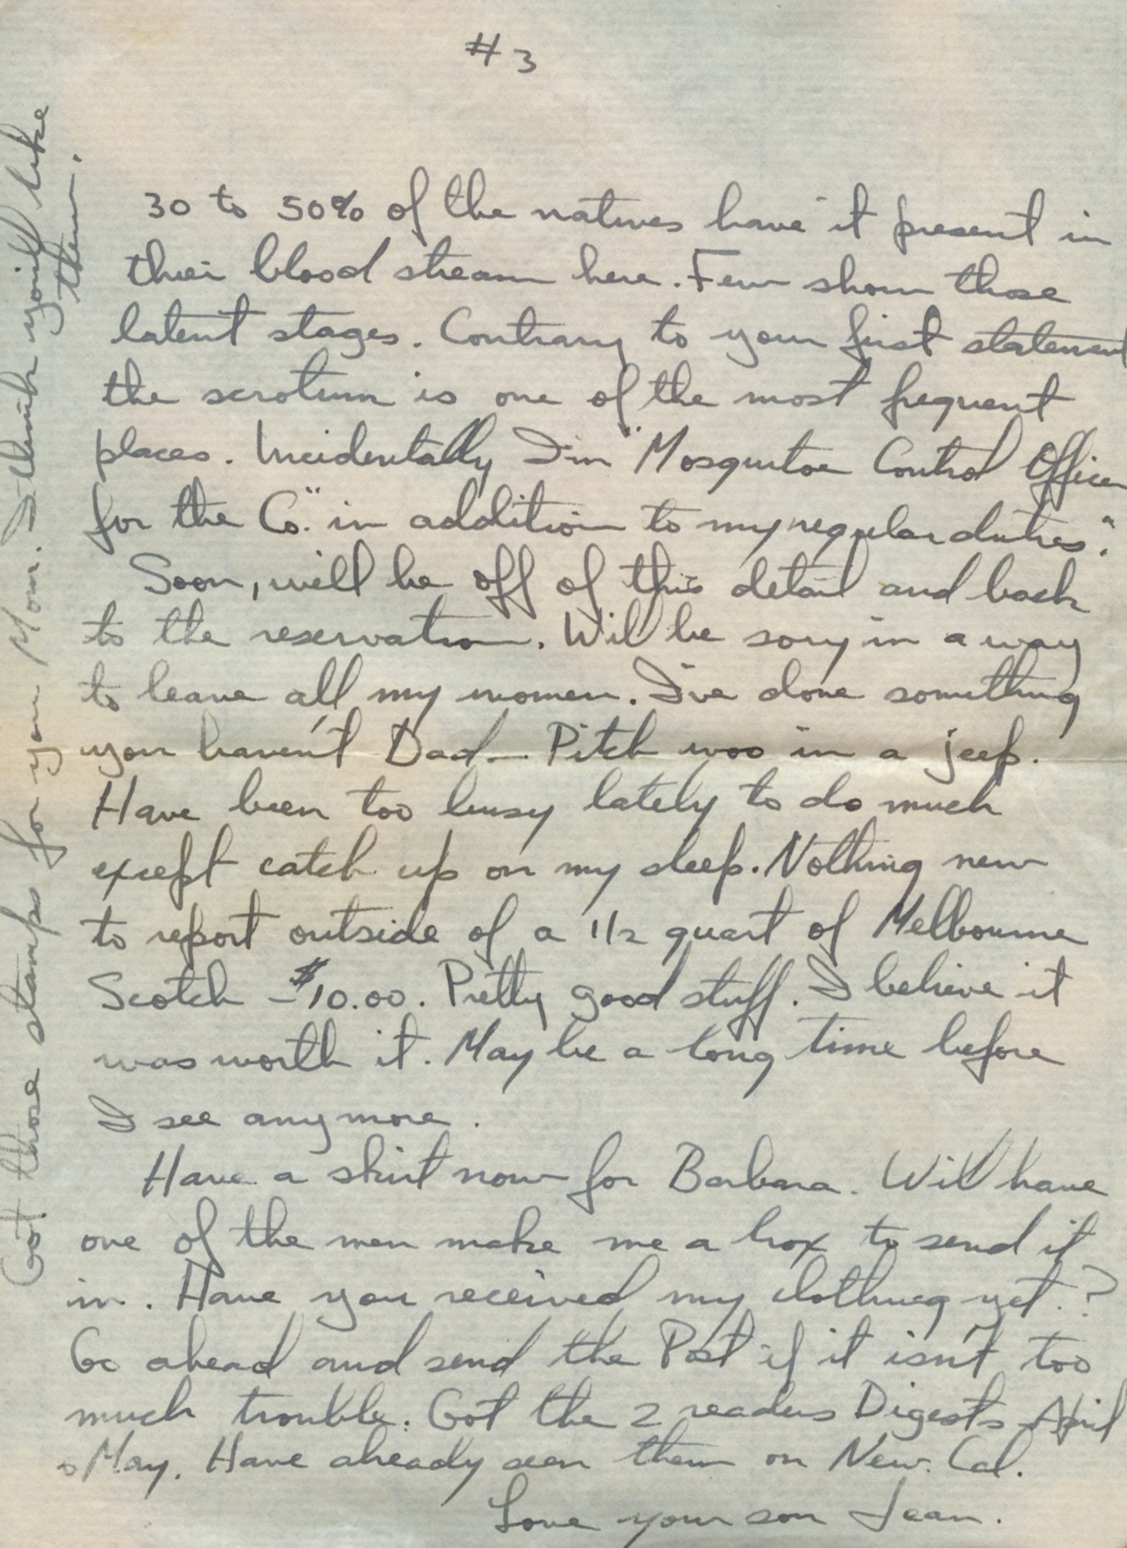 #3
30 to 50% of the natives have it present in
thier blood stream here. Few show those
latent stages. Contrary to your first statement
the scrotum is one of the most frequent
places. Incidentally I'm "Mosquitoe Control Officer
for the Co." in addition to my regular duties".
Soon, will be off of this detail and back
to the reservation. Will be sory in a way
to leave all my women. I've done something
you haven't Dad — Pitch woo in a jeep.
Have been too busy lately to do much
except catch up on my sleep. Nothing new
to report outside of a 1/2 quart of Melbourne
Scotch - $10.00. Pretty good stuff. I believe it
was worth it. May be a long time before
I see any more.
Have a skirt now for Barbara. Will have
one of the men make me a box to send it
in. Have you received my clothing yet.?
Go ahead and send the Post if it isn't too
much trouble. Got the 2 readers Digests April
& May. Have already seen them on New. Cal.
Love your son Jean.
Got those stamps for you Mom. I think you'll like
them.